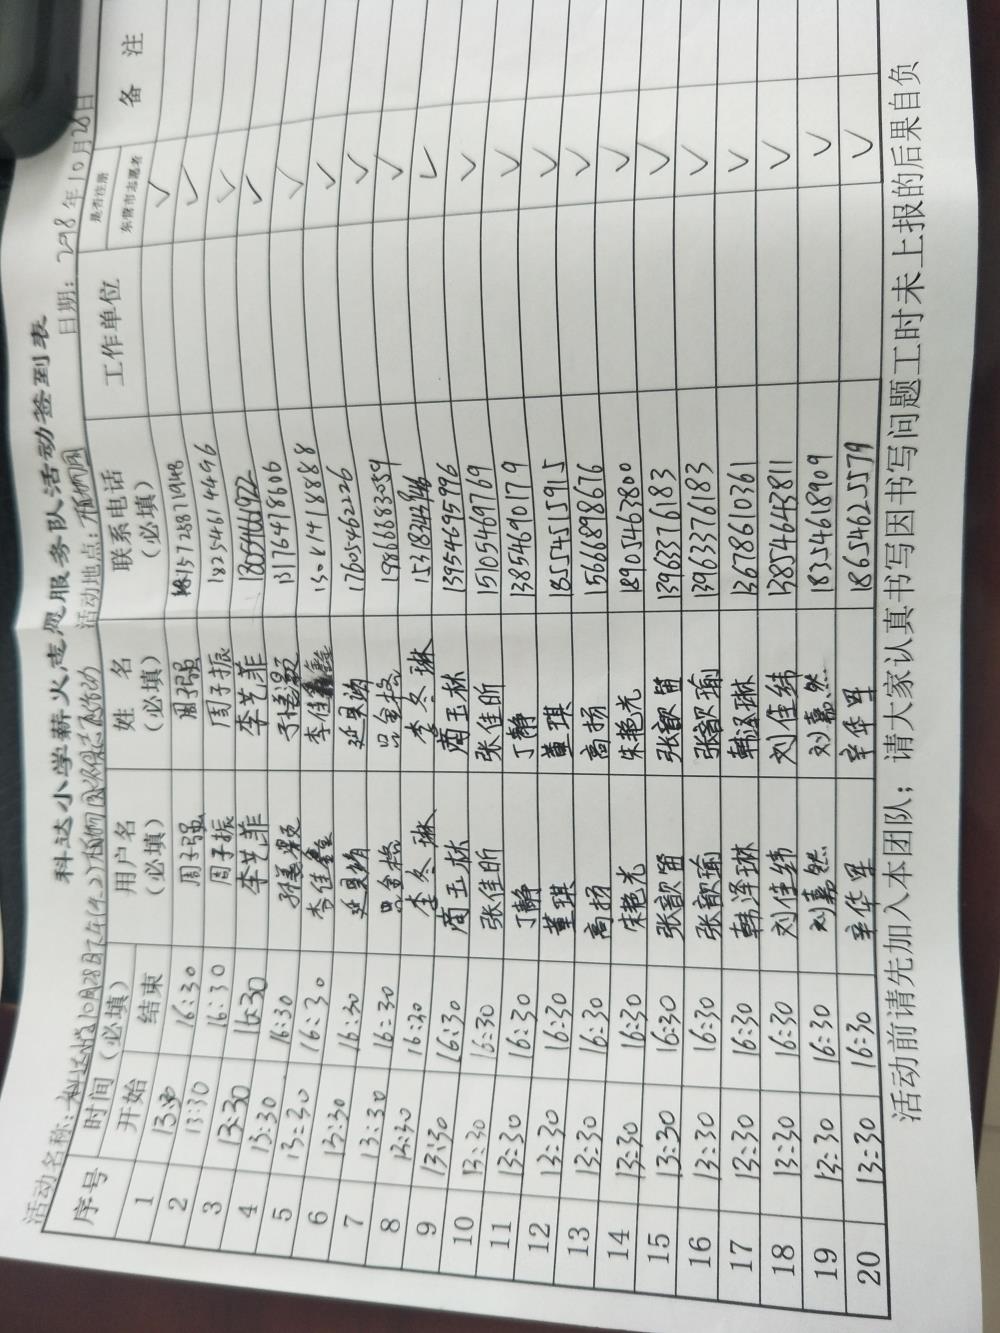 科达小学薪火志愿服务队活动签到表
活动名称: 活动地点: 植物园 日期: 2018年10月28日
序号 时间(必填) 用户名(必填) 姓名(必填) 联系电话(必填) 工作单位 是否注册东营市志愿者 备注
开始 结束
1 13:30 16:30 周子强 周子强 15728871948 ✓
2 13:30 16:30 周子振 周子振 18254614496 ✓
3 13:30 16:30 李艺菲 李艺菲 ✓
4 13:30 16:30 13176418606 ✓
5 13:30 16:30 李佳鑫 李佳鑫 ✓
6 13:30 16:30 17605462226 ✓
7 13:30 16:30 19816683059 ✓
8 13:30 16:30 李冬琳 李冬琳 ✓
9 13:30 16:30 商玉林 商玉林 13954695996 ✓
10 13:30 16:30 张佳昕 张佳昕 15105469769 ✓
11 13:30 16:30 丁静 丁静 13854690179 ✓
12 13:30 16:30 董琪 董琪 18554515915 ✓
13 13:30 16:30 高扬 高扬 15666898676 ✓
14 13:30 16:30 朱艳光 朱艳光 18905463800 ✓
15 13:30 16:30 张歆苗 张歆苗 13963376183 ✓
16 13:30 16:30 张歆瑜 张歆瑜 13963376183 ✓
17 13:30 16:30 韩泽琳 韩泽琳 13678610361 ✓
18 13:30 16:30 刘佳纬 刘佳纬 13854643811 ✓
19 13:30 16:30 刘嘉然 刘嘉然 18354618909 ✓
20 13:30 16:30 辛华军 辛华军 18654625579 ✓
活动前请先加入本团队;请大家认真书写因书写问题工时未上报的后果自负